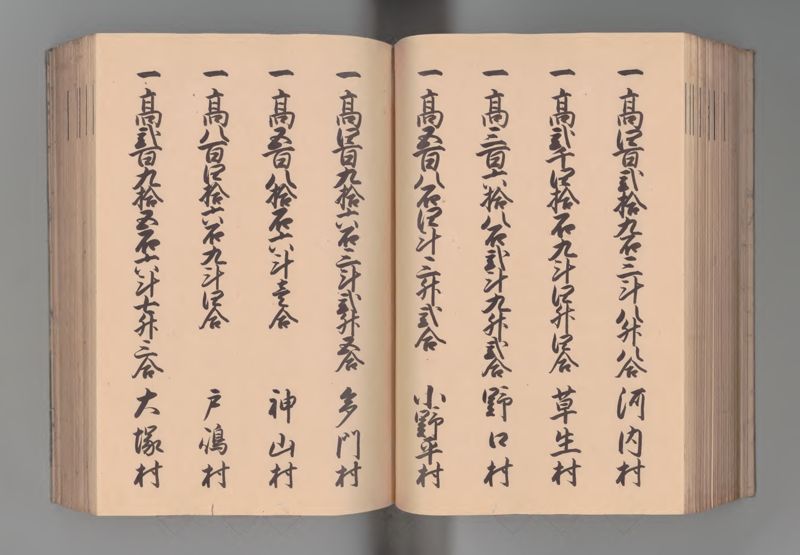 一高四百弐拾九石三斗八升八合 河内村
一高弐千四拾石九斗四升四合 草生村
一高三百六拾八石弐斗九升弐合 野口村
一高五百八石四斗三升弐合 小野平村
一高四百九拾六石三斗弐升五合 多門村
一高五百八拾石六斗壱合 神山村
一高八百四拾六石九斗四合 戸鳴村
一高弐百九拾五石六斗七升三合 大塚村